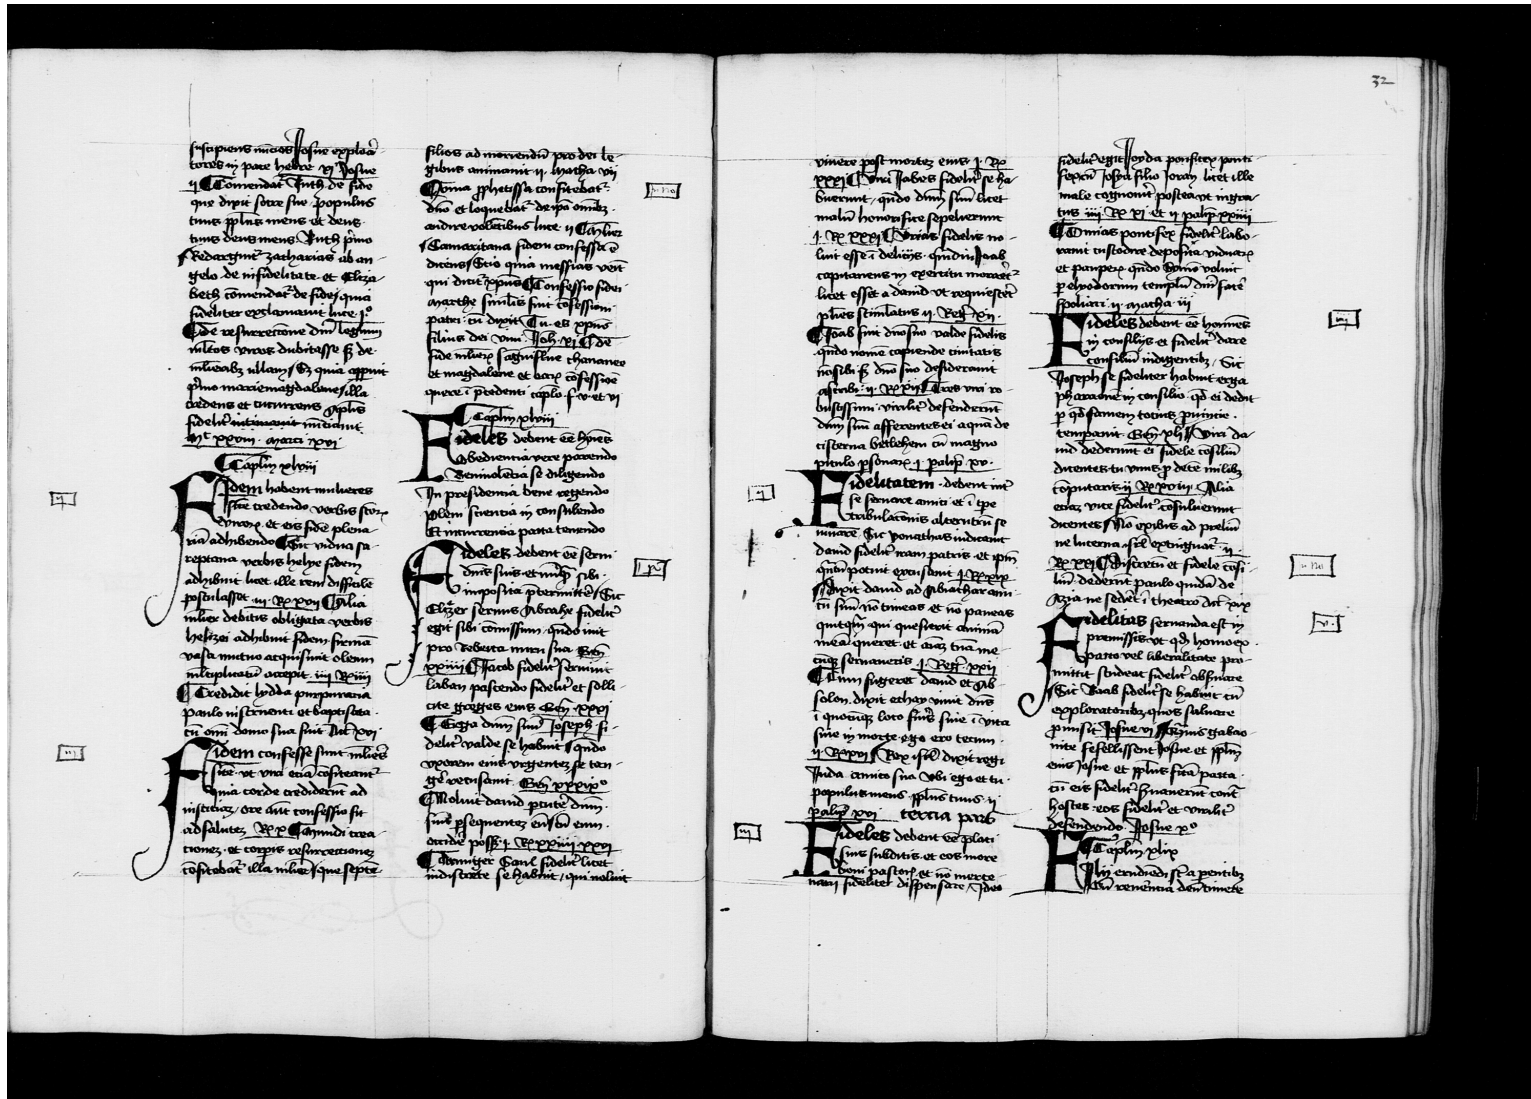 suscipiens nūcios Josue explora
tores in pace hebre. xi Josue
ij ¶ Comendat Ruth de fide
que dixit socre sue. populus
tuus pp̄lus meus et deus
tuus deus meus Ruth p̄mo
Redarguit zacharias ab an-
gelo de infidelitate. et Eliza-
beth cōmendat de fide quia
fideliter exclamauit luce j°
¶ de resurrectione dn̄i legimus
ml̄tos viros dubitasse sꝫ de
mulieribꝫ nullam Et quia apparuit
p̄mo marie magdalene illa
credens et currens ap̄lis
fideliter nūciauit
mͭ xxviii. marci xvi
¶ Capl̄m xlviii
Fidem habent mulieres
credendo verbis
virorꝫ. et eis fidē plena
riā adhibendo ¶ Sic vidua sa-
reptana verbis helye fidem
adhibuit licet ille rem difficile
postulasset. iii. Rꝫ xvii ¶ Alia
mulier debitis obligata verbis
helizei adhibuit fidem firmā
vasa mutuo acquisiuit oleum
ml̄tiplicatū accepit. iiii. R iiii
¶ Credidit lydda purpuraria
paulo instruenti et baptisata.
cū om̄i domo sua fuit Act xvi.
Fidem confesse sunt mulieres
vt viri etiā cōfiteant
Quia corde crediderūt ad
iusticiaꝫ. ore aūt confessio fit
ad salutez. Ro x ¶ mundi crea-
tionez. et corpis resurrectionez
cōfitebat illa mulier que septē
filios ad moriendū pro dei le-
gibus animauit ij. macha. vii
¶ Anna prophetissa confitebat
dn̄o et loquebat de ipō omībꝫ.
audire volētibus luce. ii ¶ Mulier
Samaritana fidem confessa ē
dicens Scio quia messias venit
qui dicit xpūs ¶ Confessio fidei
marthe similis fuit cōfessioni
petri. cū dixit Tu es xpūs
filius dei viui. Joh. xi ¶ de
fide mulierꝫ sanguiflue chananee
et magdalene et earꝫ cōfessiōe
quere ī p̄cedenti cap̄lo. f. v. et vi
¶ Capl̄m xlviii
Fideles debent eē hoīes
Obedientia vere parendo
Beniuolētia se diligendo
In presidentia bene regendo
Plem scientia in consulendo
Fideles debent eē serui
dn̄is suis. et
imposita p̄termittere Sic
Eliezer seruus Abrahe fidelit
egit sibi cōmissum. quādo iuit
pro Rebecca nuru sua. Gen̄
xxiiii ¶ Jacob fidelit seruiuit
laban pascendo fidelit et solli-
cite greges eius Gen̄ xxxi
¶ Erga dominum suū Joseph fi-
delit valde se habuit quādo
vxorem eius vrgentez se tan-
gere recusauit. Gen̄ xxxix°
¶ Noluit dauid percutere dn̄m
suū persequentez eū cū eum
occidere posset. j. R xxiiii xxvi
¶ Armiger Saul fidelit licet
indiscrete se habuit. qui noluit
32
viuere post mortez eius j. Rꝫ
xxxi ¶ Viri Jabes fidelit se ha
buerunt. quādo dn̄m suū licet
malū honorifice sepelierunt
j. Rꝫ xxxi ¶ Vrias fidelis no-
luit esse ī deliciis. quādiu Joab
capitaneus in exercitu moraret
licet esset a dauid vt requiesceret
stimulatus ij. Reg xij.
¶ Joab fuit dn̄o suo valde fidelis
quādo nomē capiende ciuitatis
nō sibi sꝫ dn̄o suo desiderauit
ascribi. ij. R xij ¶ Tres viri ro-
bustissimi. virilit defenderūt
dn̄m suū afferentes ei aquā de
cisterna bethlehem cū magno
piculo psonarꝫ. j. palip xi.
Fidelitatem. debent int
se seruare amici. et ī tpe
tribulacōnis alterutrū se
iuuare Sic Jonathas indicauit
dauid fidelit iram patris. et ipm̄
quātū potuit excusauit j. R xix
dixit dauid ad Abiathar ami-
cū suū nō timeas et nō paueas
quicqm̄ qui quesierit animā
meā queret. et aīaꝫ tuā me-
cūqꝫ seruaueris. j. Reg xxij
¶ Cum fugeret dauid et Ab-
solon. dixit ethay viuit dn̄s
ī quocūqꝫ loco fueris siue ī vita
siue in morte. ego ero tecum
ij. R xvi Rex isrl̄ dixit regi
Juda. amico suo Vbi ego et tu
populus meus. pp̄lus tuus. ij
palip xvi tercia pars
Fideles debent eē p̄lati
suis subditis. et eos more
boni pastoris. et nō merce-
narij fideliter dispensare. Ideo
fidelit egit Joyda pontifex ponti-
ficū Josya filio Joram. licet ille
male cognouit postea vt ingra-
tus. iiii. R xi. et ij palip xxiiii
¶ Onias pontifex fidelit labo-
rauit custodire deposita viduarꝫ
et pauperꝫ quādo demō voluit
p elyodorum templū dn̄i facē
spoliari. ij. macha. iii
Fideles debent eē homīes
in consilijs et fidelit dare
consiliū indigentibꝫ. Sic
Joseph se fideliter habuit. erga
pharaonē in consilio. qd̄ ei dedit
p qd̄ famem tocius prouincie.
temperauit. Gen̄ xli ¶ Viri da-
uid dederunt ei fidele cōsiliū
dicentes. tu vnus p decē milibꝫ
cōputaris. ij R xviii. Alia
eciaꝫ vice fidelit cōsuluerunt
dicentes Nō exibis ad preliū
ne lucerna. isrl̄ extinguat. ij
Rꝫ xxi ¶ discretū et fidele cōsi-
liū. dederunt paulo quidā de
Azia ne sederet ī theatro Act xix
Fidelitas seruanda est in
premissis vt qd̄ homo ex
pacto vel liberalitate pro-
mittit studeat fidelit obseruare
Sic Raab fidelit se habuit cū
exploratoribꝫ. quos saluare
promisit Josue vi gabao-
nite fefellissent Josue. et pp̄lm
eius Josue et pp̄lus fcm̄ pacta
cū eis fidelit seruauerunt cont
hostes. eos fidelit et virilit
defendendo. Josue x°
¶ Capl̄m xlix
Filij erudiendi st a parentibꝫ
cū reuerencia dn̄i timere